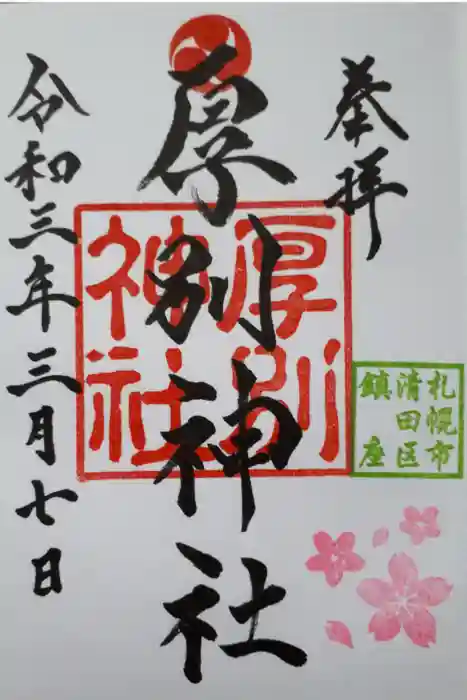 奉拝
札幌市
清田区
鎮座
厚別神社
厚別
神社
令和三年三月七日